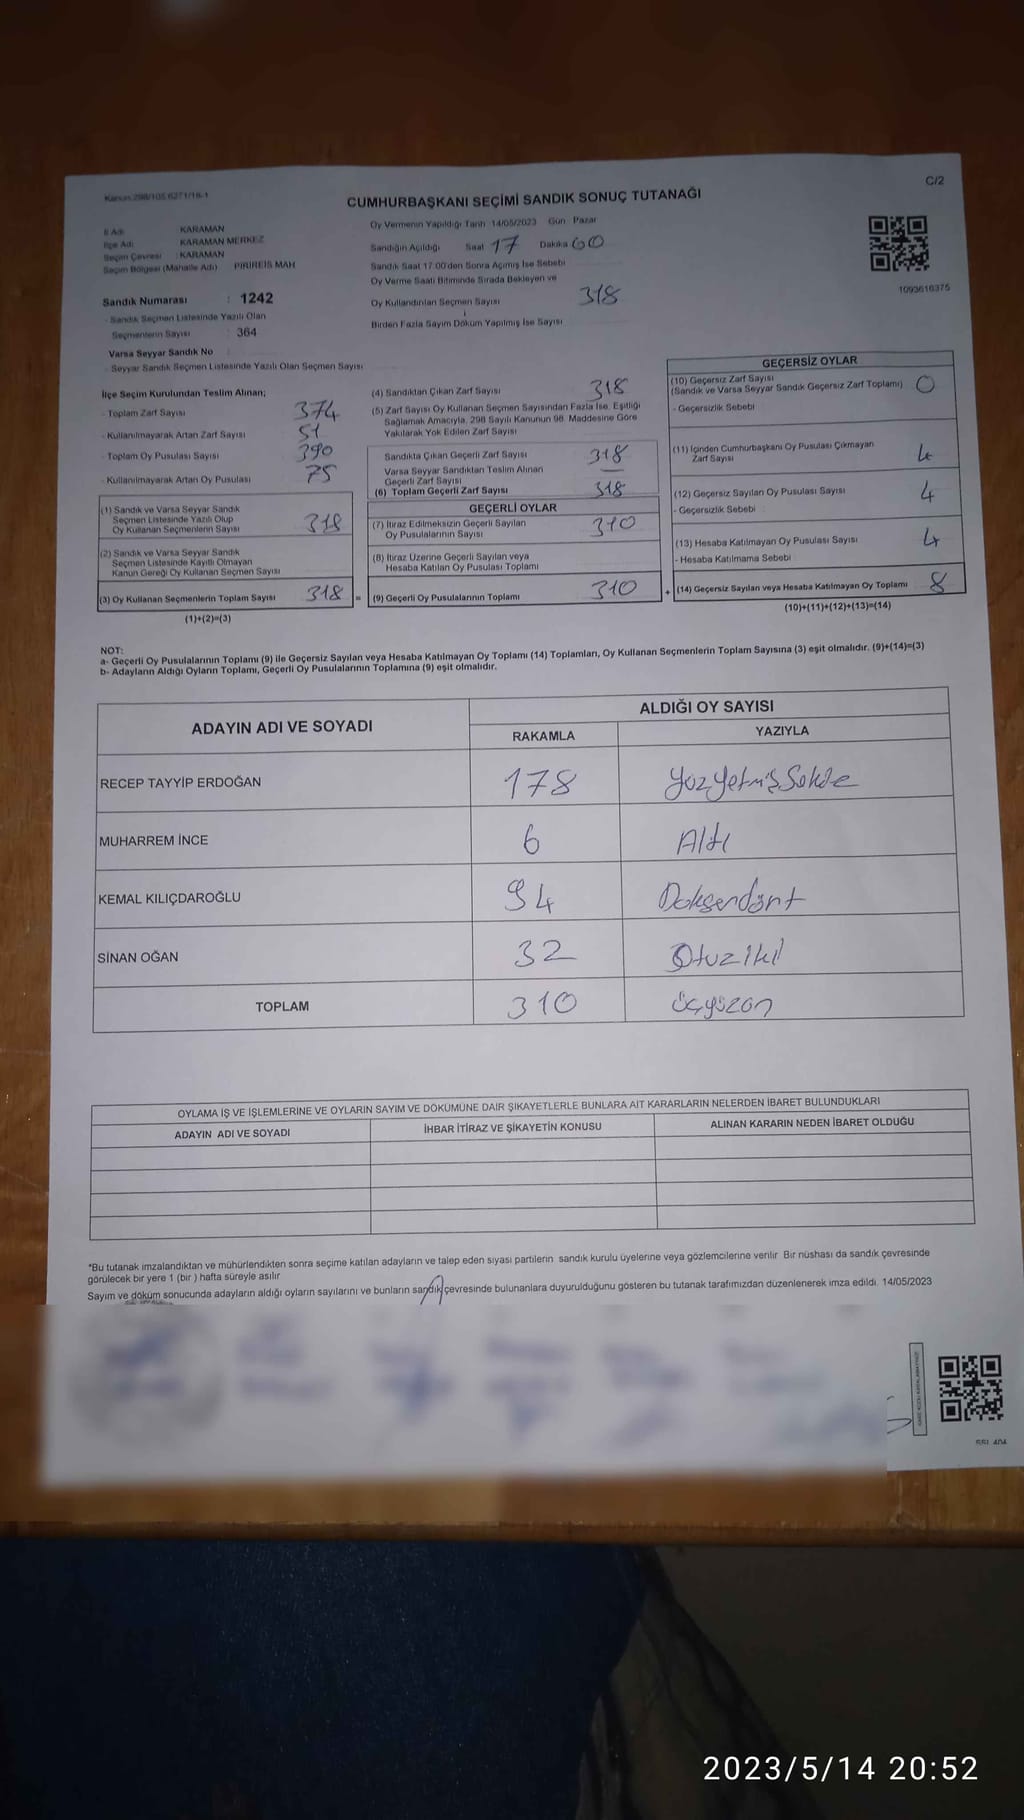 Kanun:298/105 6271/18-1
C/2
CUMHURBAŞKANI SEÇİMİ SANDIK SONUÇ TUTANAĞI
İl Adı : KARAMAN
İlçe Adı : KARAMAN MERKEZ
Seçim Çevresi : KARAMAN
Seçim Bölgesi (Mahalle Adı) : PİRİREİS MAH
Sandık Numarası : 1242
- Sandık Seçmen Listesinde Yazılı Olan
Seçmenlerin Sayısı : 364
Varsa Seyyar Sandık No :
- Seyyar Sandık Seçmen Listesinde Yazılı Olan Seçmen Sayısı
Oy Vermenin Yapıldığı Tarih 14/05/2023 Gün Pazar
Sandığın Açıldığı Saat 17 Dakika 00
Sandık Saat 17:00'den Sonra Açımış İse Sebebi
Oy Verme Saati Bitiminde Sırada Bekleyen ve
Oy Kullandırılan Seçmen Sayısı 318
Birden Fazla Sayım Döküm Yapılmış İse Sayısı
1093616375
İlçe Seçim Kurulundan Teslim Alınan;
- Toplam Zarf Sayısı 374
- Kullanılmayarak Artan Zarf Sayısı 51
- Toplam Oy Pusulası Sayısı 390
- Kullanılmayarak Artan Oy Pusulası 75
(1) Sandık ve Varsa Seyyar Sandık
Seçmen Listesinde Yazılı Olup
Oy Kullanan Seçmenlerin Sayısı 318
(2) Sandık ve Varsa Seyyar Sandık
Seçmen Listesinde Kayıtlı Olmayan
Kanun Gereği Oy Kullanan Seçmen Sayısı
(3) Oy Kullanan Seçmenlerin Toplam Sayısı 318 =
(1)+(2)=(3)
(4) Sandıktan Çıkan Zarf Sayısı 318
(5) Zarf Sayısı Oy Kullanan Seçmen Sayısından Fazla İse, Eşitliği
Sağlamak Amacıyla, 298 Sayılı Kanunun 98. Maddesine Göre
Yakılarak Yok Edilen Zarf Sayısı
Sandıkta Çıkan Geçerli Zarf Sayısı 318
Varsa Seyyar Sandıktan Teslim Alınan
Geçerli Zarf Sayısı —
(6) Toplam Geçerli Zarf Sayısı 318
GEÇERLİ OYLAR
(7) İtiraz Edilmeksizin Geçerli Sayılan
Oy Pusulasının Sayısı 310
(8) İtiraz Üzerine Geçerli Sayılan veya
Hesaba Katılan Oy Pusulası Toplamı
(9) Geçerli Oy Pusulalarının Toplamı 310 +
GEÇERSİZ OYLAR
(10) Geçersiz Zarf Sayısı
(Sandık ve Varsa Seyyar Sandık Geçersiz Zarf Toplamı) 0
- Geçersizlik Sebebi
(11) İçinden Cumhurbaşkanı Oy Pusulası Çıkmayan
Zarf Sayısı 4
(12) Geçersiz Sayılan Oy Pusulası Sayısı 4
- Geçersizlik Sebebi
(13) Hesaba Katılmayan Oy Pusulası Sayısı 4
- Hesaba Katılmama Sebebi
(14) Geçersiz Sayılan veya Hesaba Katılmayan Oy Toplamı 8
(10)+(11)+(12)+(13)=(14)
NOT:
a- Geçerli Oy Pusulalarının Toplamı (9) ile Geçersiz Sayılan veya Hesaba Katılmayan Oy Toplamı (14) Toplamları, Oy Kullanan Seçmenlerin Toplam Sayısına (3) eşit olmalıdır. (9)+(14)=(3)
b- Adayların Aldığı Oyların Toplamı, Geçerli Oy Pusulalarının Toplamına (9) eşit olmalıdır.
ADAYIN ADI VE SOYADI
ALDIĞI OY SAYISI
RAKAMLA YAZIYLA
RECEP TAYYİP ERDOĞAN 178 YüzYetmişSekiz
MUHARREM İNCE 6 Altı
KEMAL KILIÇDAROĞLU 94 Doksandört
SİNAN OĞAN 32 Otuziki
TOPLAM 310 üçyüzon
OYLAMA İŞ VE İŞLEMLERİNE VE OYLARIN SAYIM VE DÖKÜMÜNE DAİR ŞİKAYETLERLE BUNLARA AİT KARARLARIN NELERDEN İBARET BULUNDUKLARI
ADAYIN ADI VE SOYADI İHBAR İTİRAZ VE ŞİKAYETİN KONUSU ALINAN KARARIN NEDEN İBARET OLDUĞU
*Bu tutanak imzalandıktan ve mühürlendikten sonra seçime katılan adayların ve talep eden siyasi partilerin sandık kurulu üyelerine veya gözlemcilerine verilir Bir nüshası da sandık çevresinde
görülecek bir yere 1 (bir ) hafta süreyle asılır
Sayım ve döküm sonucunda adayların aldığı oyların sayılarını ve bunların sandık çevresinde bulunanlara duyurulduğunu gösteren bu tutanak tarafımızdan düzenlenerek imza edildi. 14/05/2023
2023/5/14 20:52